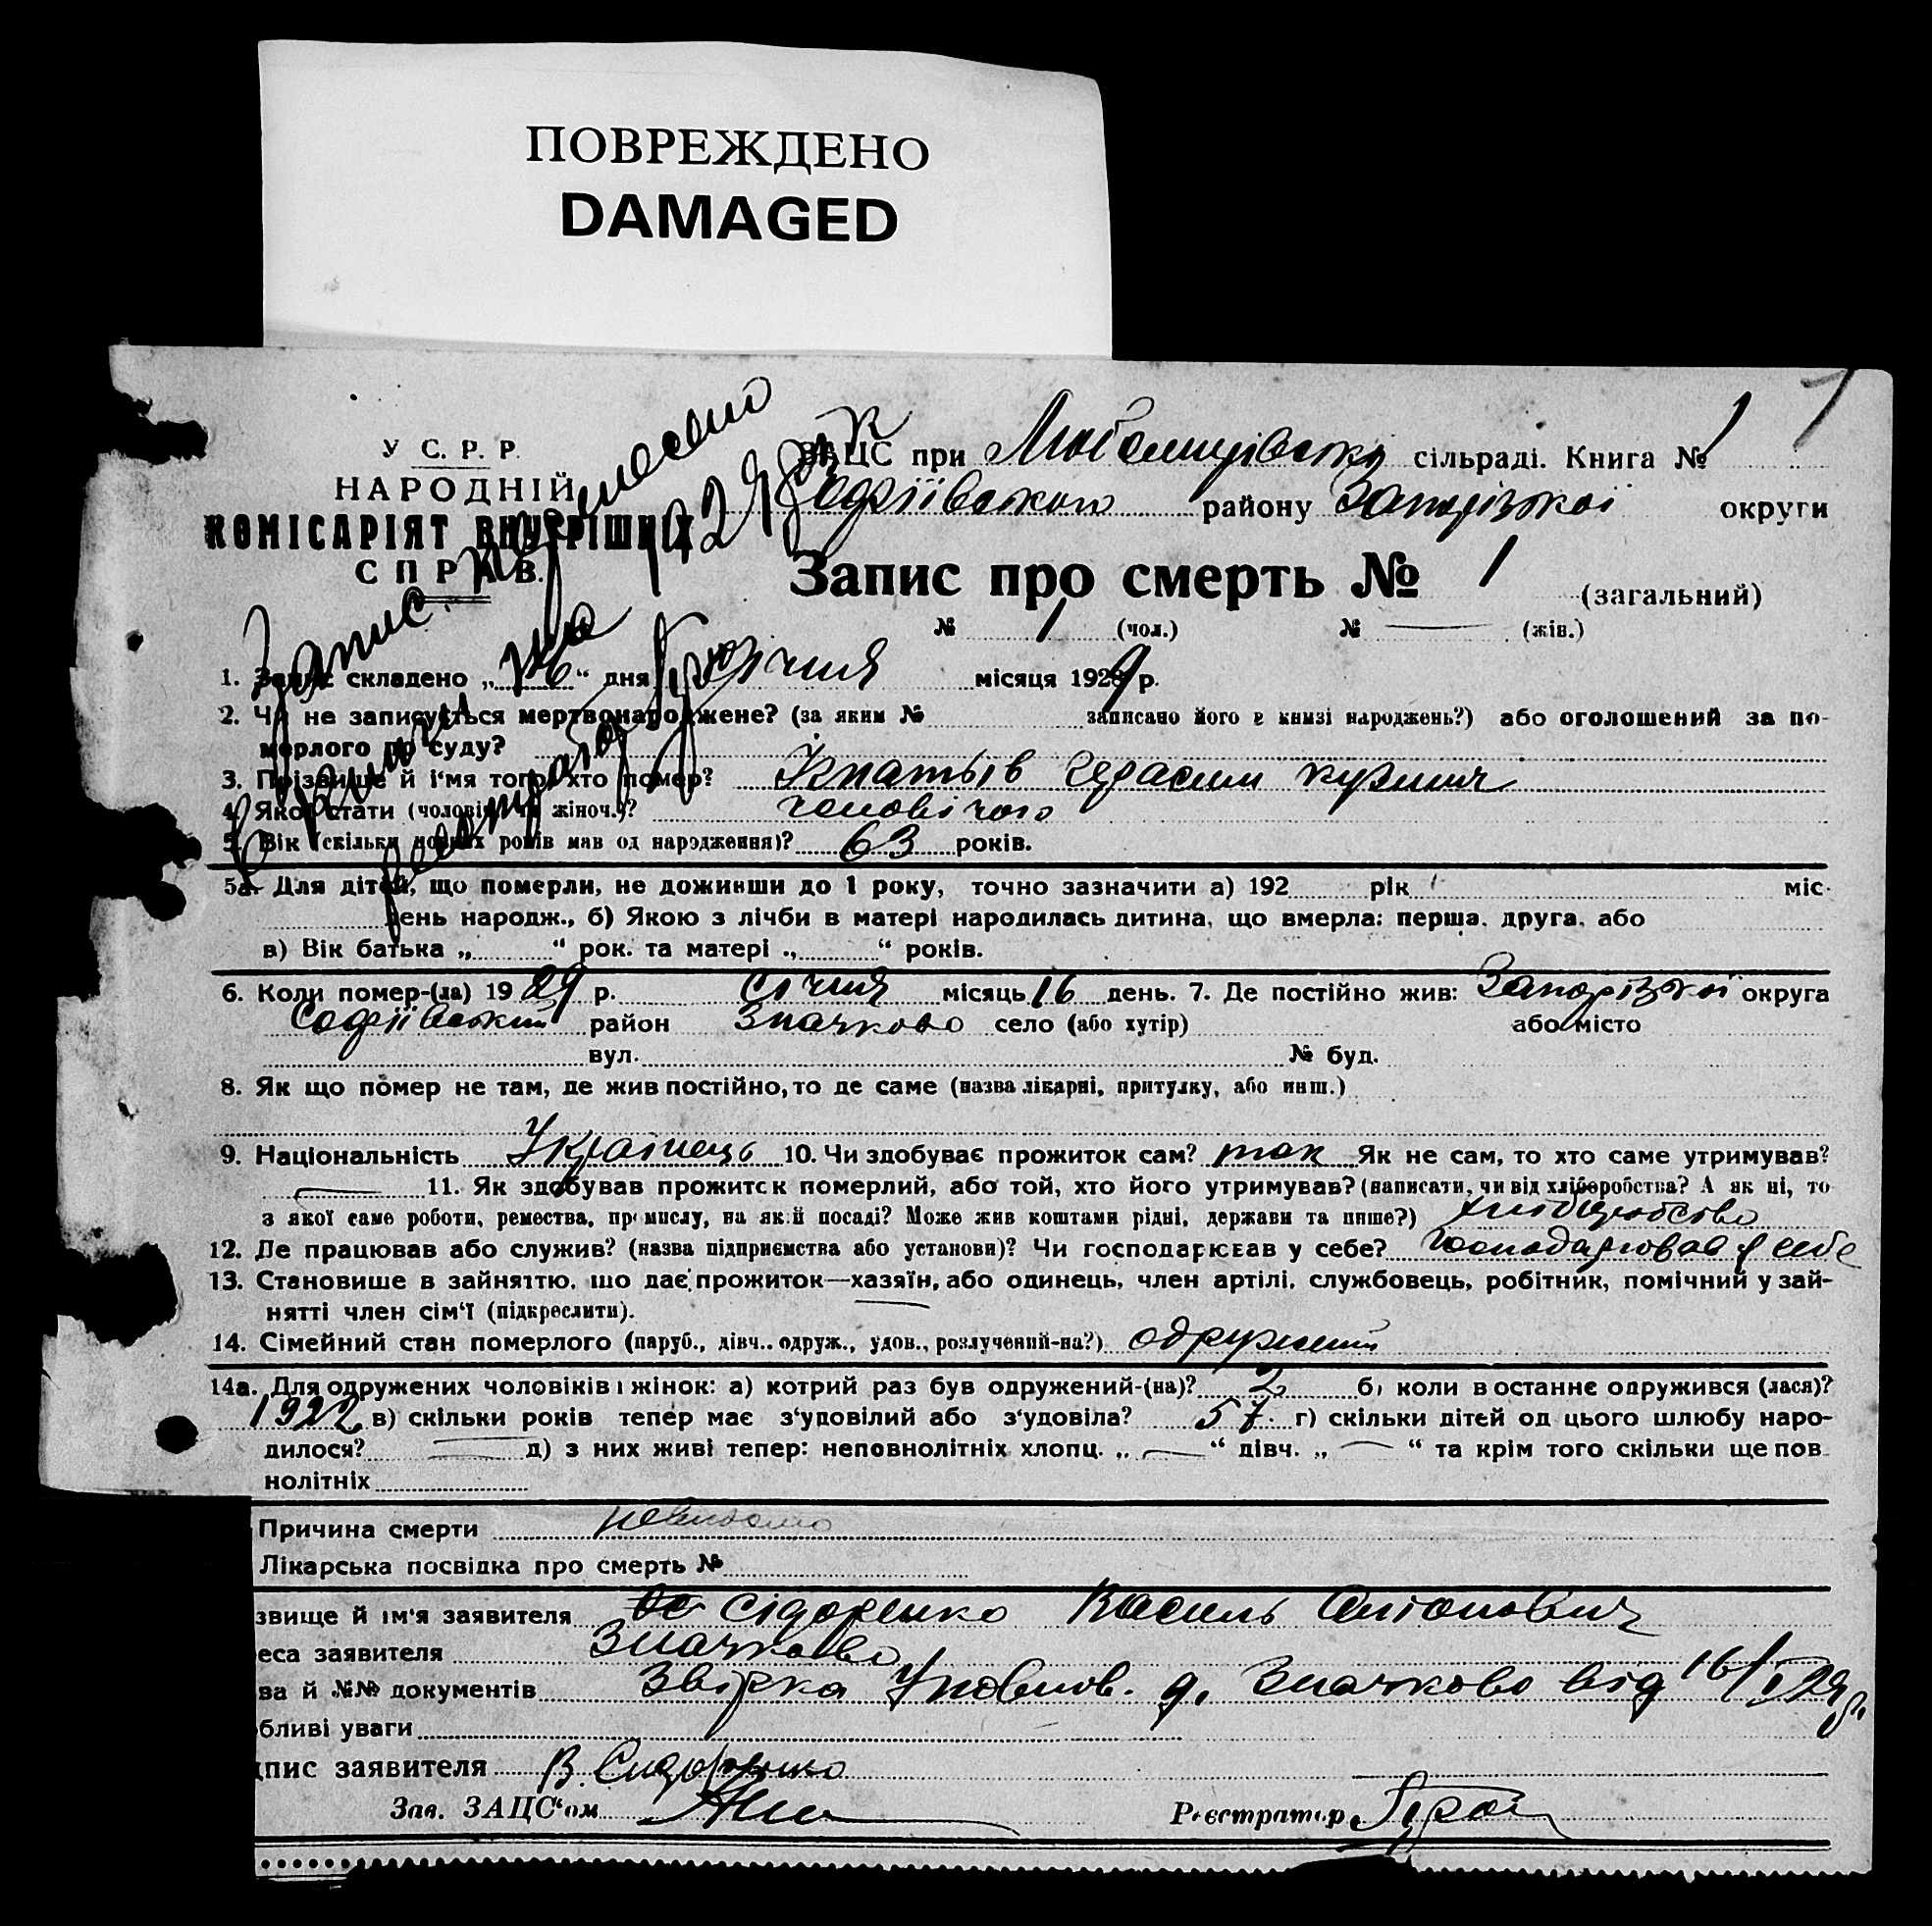 ПОВРЕЖДЕНО
DAMAGED
У С. Р. Р.
НАРОДНІЙ
КОМІСАРІЯТ ВНУТРІШНІХ
СПРАВ.
ЗАЦС при сільраді. Книга № 1
Софіївського району Запорізької округи
Запис про смерть № 1 (загальний)
№ 1 (чол.) № — (жів.)
Запис перенесено
на 1928 рік
1. Запис складено „16“ дня січня місяця 1929 р.
2. Чи не записується мертвонароджене? (за яким № записано його в книзі народжень?) або оголошений за по-
мерлого по суду?
3. Прізвище й і'мя того, хто помер? Ігнатьїв Герасим
4. Якої стати (чоловіч. чи жіноч.)? чоловічого
5. Вік (скільки повних років мав од народження)? 63 років.
5а. Для дітей, що померли, не доживши до 1 року, точно зазначити а) 192 рік міс.
день народж., б) Якою з лічби в матері народилась дитина, що вмерла: перша, друга, або
в) Вік батька „ “ рок. та матері „ “ років.
6. Коли помер-(ла) 1929 р. січня місяць 16 день. 7. Де постійно жив: Запорізької округа
Софіївський район Значково село (або хутір) або місто
вул. № буд.
8. Як що помер не там, де жив постійно, то де саме (назва лікарні, притулку, або инш.)
9. Національність Українець 10. Чи здобуває прожиток сам? так Як не сам, то хто саме утримував?
— 11. Як здобував прожиток померлий, або той, хто його утримував? (написати, чи від хліборобства? А як ні, то
з якої саме роботи, ремества, промислу, на якій посаді? Може жив коштами рідні, держави та инше?) хліборобство
12. Де працював або служив? (назва підприємства або установи)? Чи господарював у себе? Господарював у себе
13. Становище в зайняттю, що дає прожиток—хазяїн, або одинець, член артілі, службовець, робітник, помічний у зай-
нятті член сім'ї (підкреслити).
14. Сімейний стан померлого (паруб., дівч., одруж., удов., розлучений-на?) одружений
14а. Для одружених чоловіків і жінок: а) котрий раз був одружений-(на)? 2 б) коли востаннє одружився (лася)?
1922 в) скільки років тепер має з'уповілий або з'удовіла? 57 г) скільки дітей од цього шлюбу наро-
дилося? — д) з них живі тепер: неповнолітніх хлопц. „ — “ дівч. „ — “ та крім того скільки ще пов
нолітніх
Причина смерти невідомо
Лікарська посвідка про смерть №
звище й ім'я заявителя Сідоренко Василь Антонович
еса заявителя Значково
ва й №№ документів Уповнов. д. Значково від 16/I 29 р.
бливі уваги
дпис заявителя В. Сидоренко
Зав. ЗАЦС'ом
Реєстратор